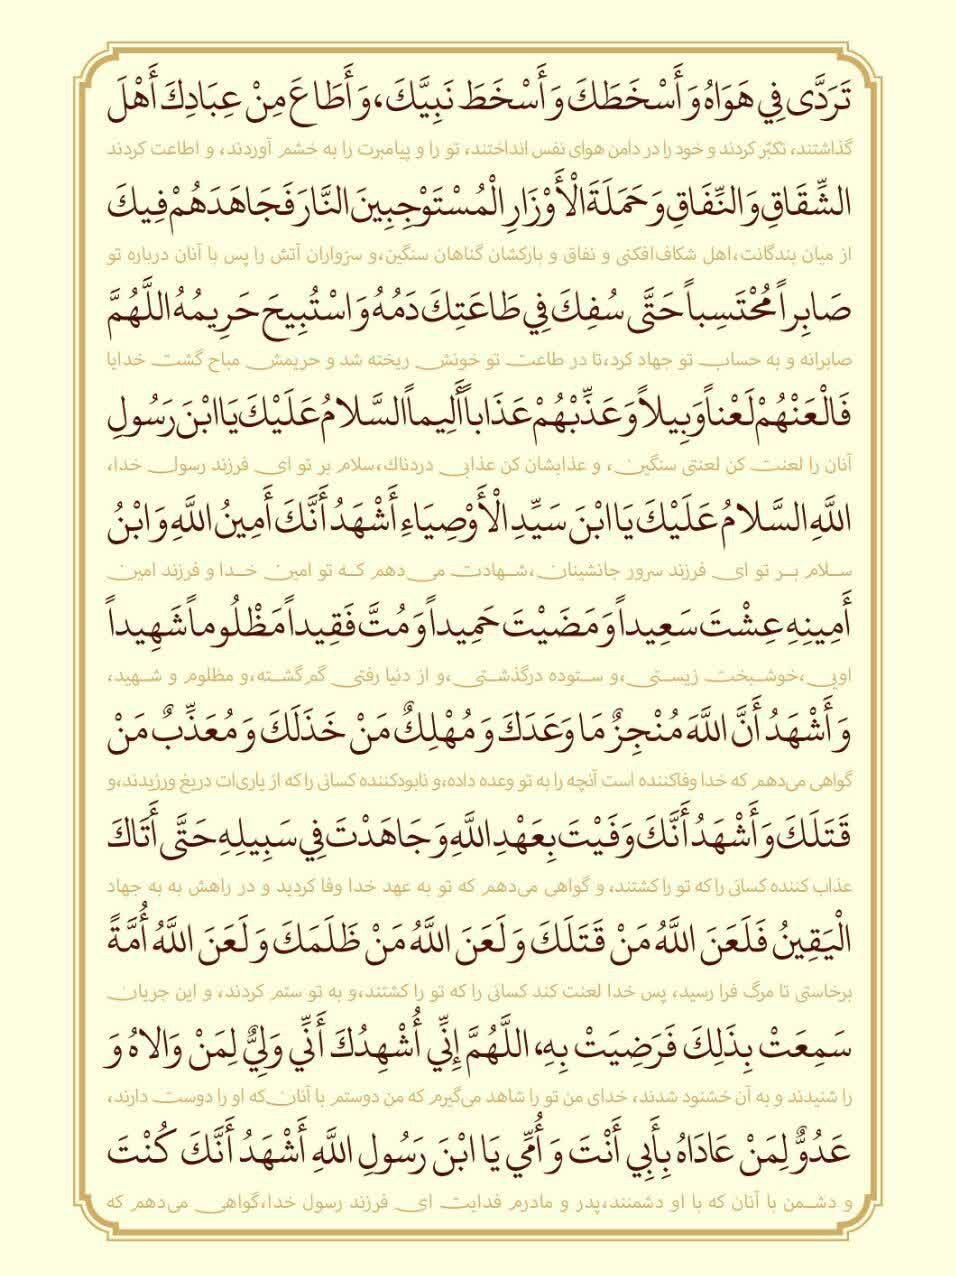 تَرَدَّى فِي هَوَاهُ وَ أَسْخَطَكَ وَ أَسْخَطَ نَبِيَّكَ، وَ أَطَاعَ مِنْ عِبَادِكَ أَهْلَ
گذاشتند، تکبّر کردند و خود را در دامن هوای نفس انداختند، تو را و پیامبرت را به خشم آوردند، و اطاعت کردند
الشِّقَاقِ وَ النِّفَاقِ وَ حَمَلَةَ الْأَوْزَارِ الْمُسْتَوْجِبِينَ النَّارَ فَجَاهَدَهُمْ فِيكَ
از میان بندگانت،اهل شکاف‌افکنی و نفاق و بارکشان گناهان سنگین،و سزواران آتش را پس با آنان درباره تو
صَابِراً مُحْتَسِباً حَتَّى سُفِكَ فِي طَاعَتِكَ دَمُهُ وَ اسْتُبِيحَ حَرِيمُهُ اللَّهُمَّ
صابرانه و به حساب تو جهاد کرد،تا در طاعت تو خونش ریخته شد و حریمش مباح گشت خدایا
فَالْعَنْهُمْ لَعْناً وَبِيلاً وَ عَذِّبْهُمْ عَذَاباً أَلِيماً السَّلامُ عَلَيْكَ يَا ابْنَ رَسُولِ
آنان را لعنت کن لعنتی سنگین، و عذابشان کن عذابی دردناك،سلام بر تو ای فرزند رسول خدا،
اللَّهِ السَّلامُ عَلَيْكَ يَا ابْنَ سَيِّدِ الْأَوْصِيَاءِ أَشْهَدُ أَنَّكَ أَمِينُ اللَّهِ وَ ابْنُ
سلام بر تو ای فرزند سرور جانشینان،شهادت می‌دهم که تو امین خدا و فرزند امین
أَمِينِهِ عِشْتَ سَعِيداً وَ مَضَيْتَ حَمِيداً وَ مُتَّ فَقِيداً مَظْلُوماً شَهِيداً
اویی،خوشبخت زیستی،و ستوده درگذشتی،و از دنیا رفتی گم‌گشته،و مظلوم و شهید،
وَ أَشْهَدُ أَنَّ اللَّهَ مُنْجِزٌ مَا وَعَدَكَ وَ مُهْلِكٌ مَنْ خَذَلَكَ وَ مُعَذِّبٌ مَنْ
گواهی می‌دهم که خدا وفاکننده است آنچه را به تو وعده داده،و نابودکننده کسانی را که از یاری‌ات دریغ ورزیدند،و
قَتَلَكَ وَ أَشْهَدُ أَنَّكَ وَفَيْتَ بِعَهْدِ اللَّهِ وَ جَاهَدْتَ فِي سَبِيلِهِ حَتَّى أَتَاكَ
عذاب کننده کسانی را که تو را کشتند، و گواهی می‌دهم که تو به عهد خدا وفا کردید و در راهش به به جهاد
الْيَقِينُ فَلَعَنَ اللَّهُ مَنْ قَتَلَكَ وَ لَعَنَ اللَّهُ مَنْ ظَلَمَكَ وَ لَعَنَ اللَّهُ أُمَّةً
برخاستی تا مرگ فرا رسید، پس خدا لعنت کند کسانی را که تو را کشتند،و به تو ستم کردند، و این جریان
سَمِعَتْ بِذَلِكَ فَرَضِيَتْ بِهِ، اللَّهُمَّ إِنِّي أُشْهِدُكَ أَنِّي وَلِيٌّ لِمَنْ وَالاهُ وَ
را شنیدند و به آن خشنود شدند، خدای من تو را شاهد می‌گیرم که من دوستم با آنان‌که او را دوست دارند،
عَدُوٌّ لِمَنْ عَادَاهُ بِأَبِي أَنْتَ وَ أُمِّي يَا ابْنَ رَسُولِ اللَّهِ أَشْهَدُ أَنَّكَ كُنْتَ
و دشمن با آنان که با او دشمنند،پدر و مادرم فدایت ای فرزند رسول خدا،گواهی می‌دهم که